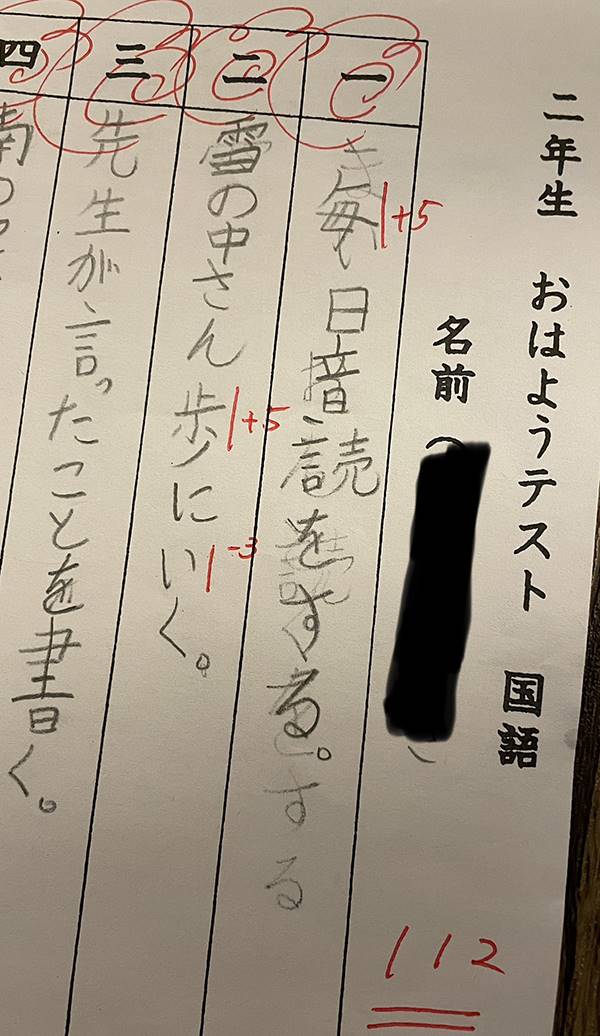 二年生 おはようテスト 国語
名前(
一
毎日音読をする。
+5
二
雪の中さん歩にいく。
+5
-3
三
先生が言ったことを書く。
四
南の
112